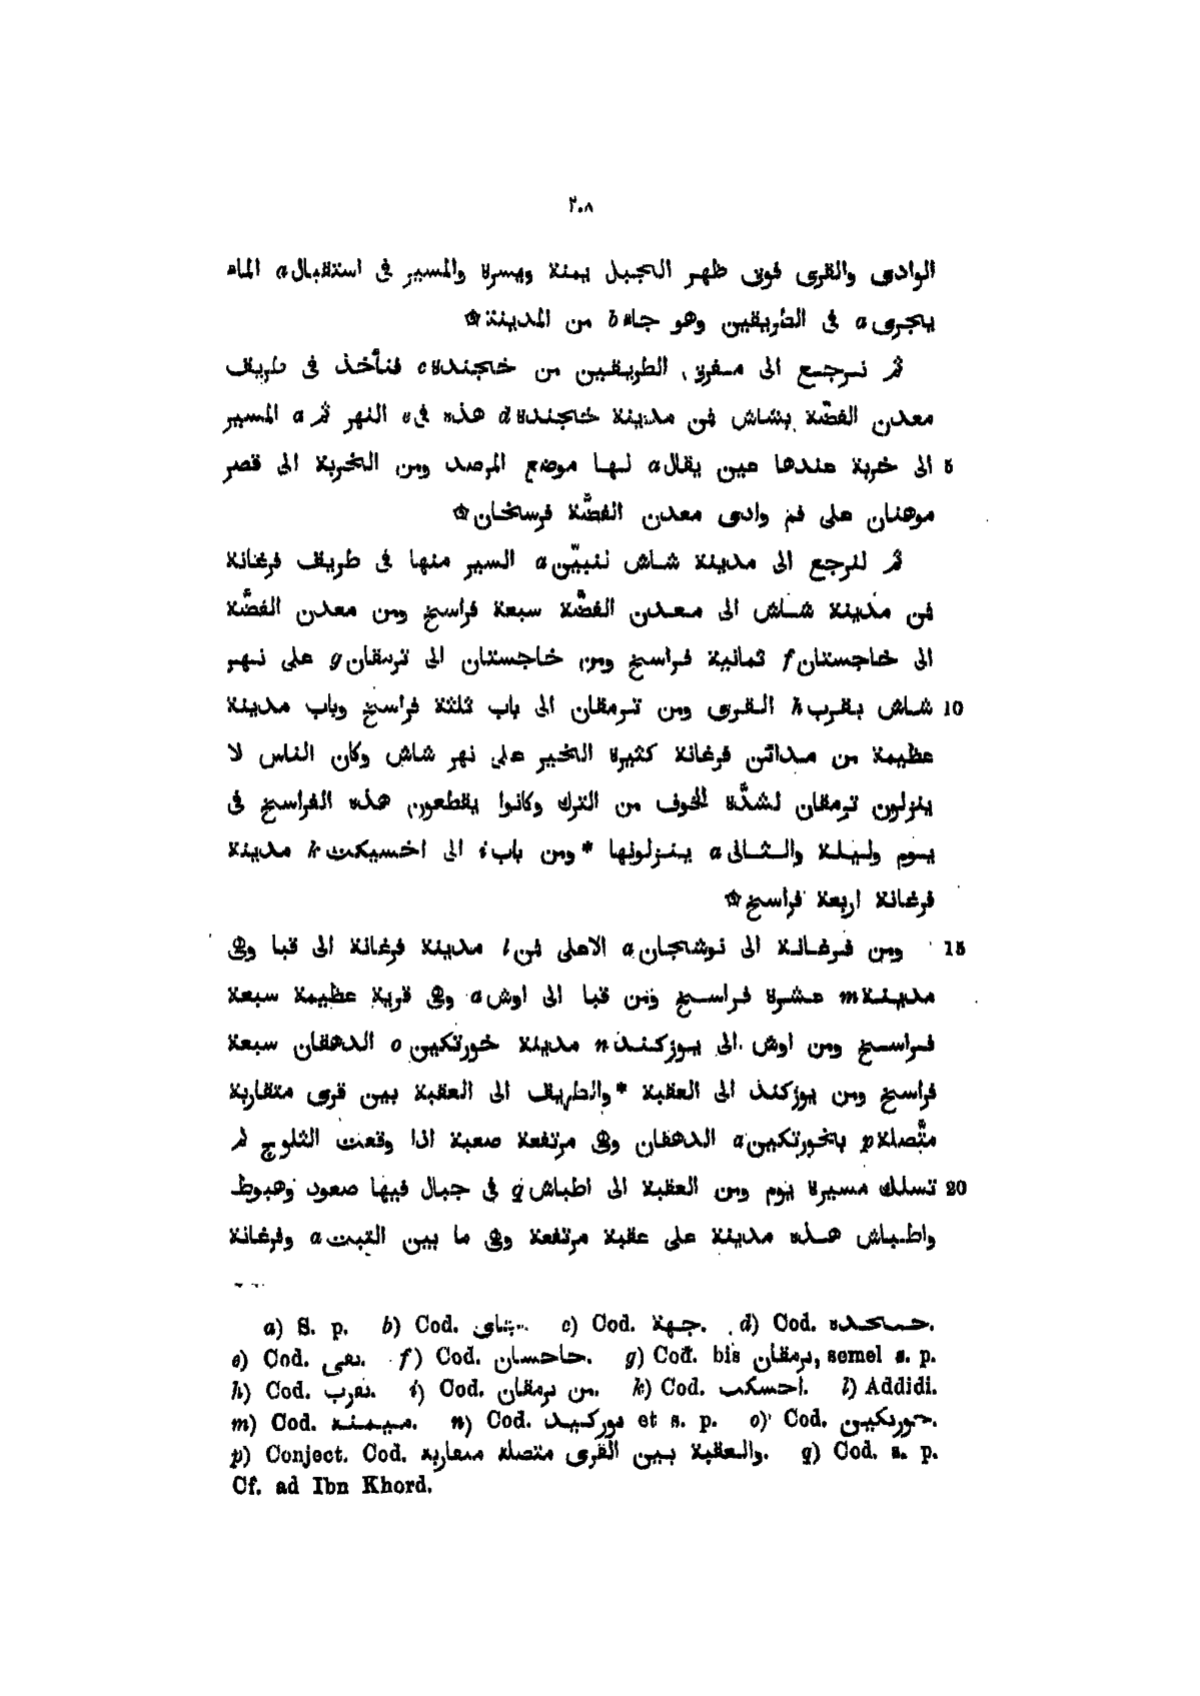 ٢٠٨
الوادى والقرى فوق ظهر الجبل يمنة ويسرة والمسير فى استقبال a الماء
يجرى a فى الطريقين وهو جاء b من المدينة ☆
ثم نرجع الى مفرق الطريقين من خجندة c فنأخذ فى طريق
معدن الفضّة بشاش فمن مدينة خجندة d هذه فى e النهر ثم a المسير
5 الى خربة عندها عين يقال a لها موضع المرصد ومن الخربة الى قصر
موهنان على فم وادى معدن الفضّة فرسخان ☆
ثم لنرجع الى مدينة شاش لنبيّن a السير منها فى طريق فرغانة
فمن مدينة شاش الى معدن الفضّة سبعة فراسخ ومن معدن الفضّة
الى خاجستان f ثمانية فراسخ ومن خاجستان الى ترمقان g على نهر
10 شاش بقرب h القرى ومن ترمقان الى باب ثلثة فراسخ وباب مدينة
عظيمة من مدائن فرغانة كثيرة الخير على نهر شاش وكان الناس لا
ينزلون ترمقان لشدّة الخوف من الترك وكانوا يقطعون هذه الفراسخ فى
يوم وليلة والثانى a ينزلونها * ومن باب i الى اخسيكت k مدينة
فرغانة اربعة فراسخ ☆
15 ومن فرغانة الى نوشجان a الاعلى فمن l مدينة فرغانة الى قبا وهى
مدينة m عشرة فراسخ ومن قبا الى اوش a وهى قرية عظيمة سبعة
فراسخ ومن اوش الى يوزكند n مدينة خورتكين o الدهقان سبعة
فراسخ ومن يوزكند الى العقبة * والطريق الى العقبة بين قرى متقاربة
متّصلة p بخورتكين a الدهقان وهى مرتفعة صعبة اذا وقعت الثلوج لم
20 تسلك مسيرة يوم ومن العقبة الى اطباش q فى جبال فيها صعود وهبوط
واطباش هذه مدينة على عقبة مرتفعة وهى ما بين التبت a وفرغانة
a) S. p. b) Cod. c) Cod. جهة. d) Cod.
e) Cod. نعى. f) Cod. حاحسان. g) Cod. bis نرمقان, semel s. p.
h) Cod. نعرب. i) Cod. من نرمقان. k) Cod. احسكب. l) Addidi.
m) Cod. n) Cod. نوركىد et s. p. o) Cod. حورنكين.
p) Conject. Cod. والعقبة بين القرى متصلة متعاربة. q) Cod. s. p.
Cf. ad Ibn Khord.